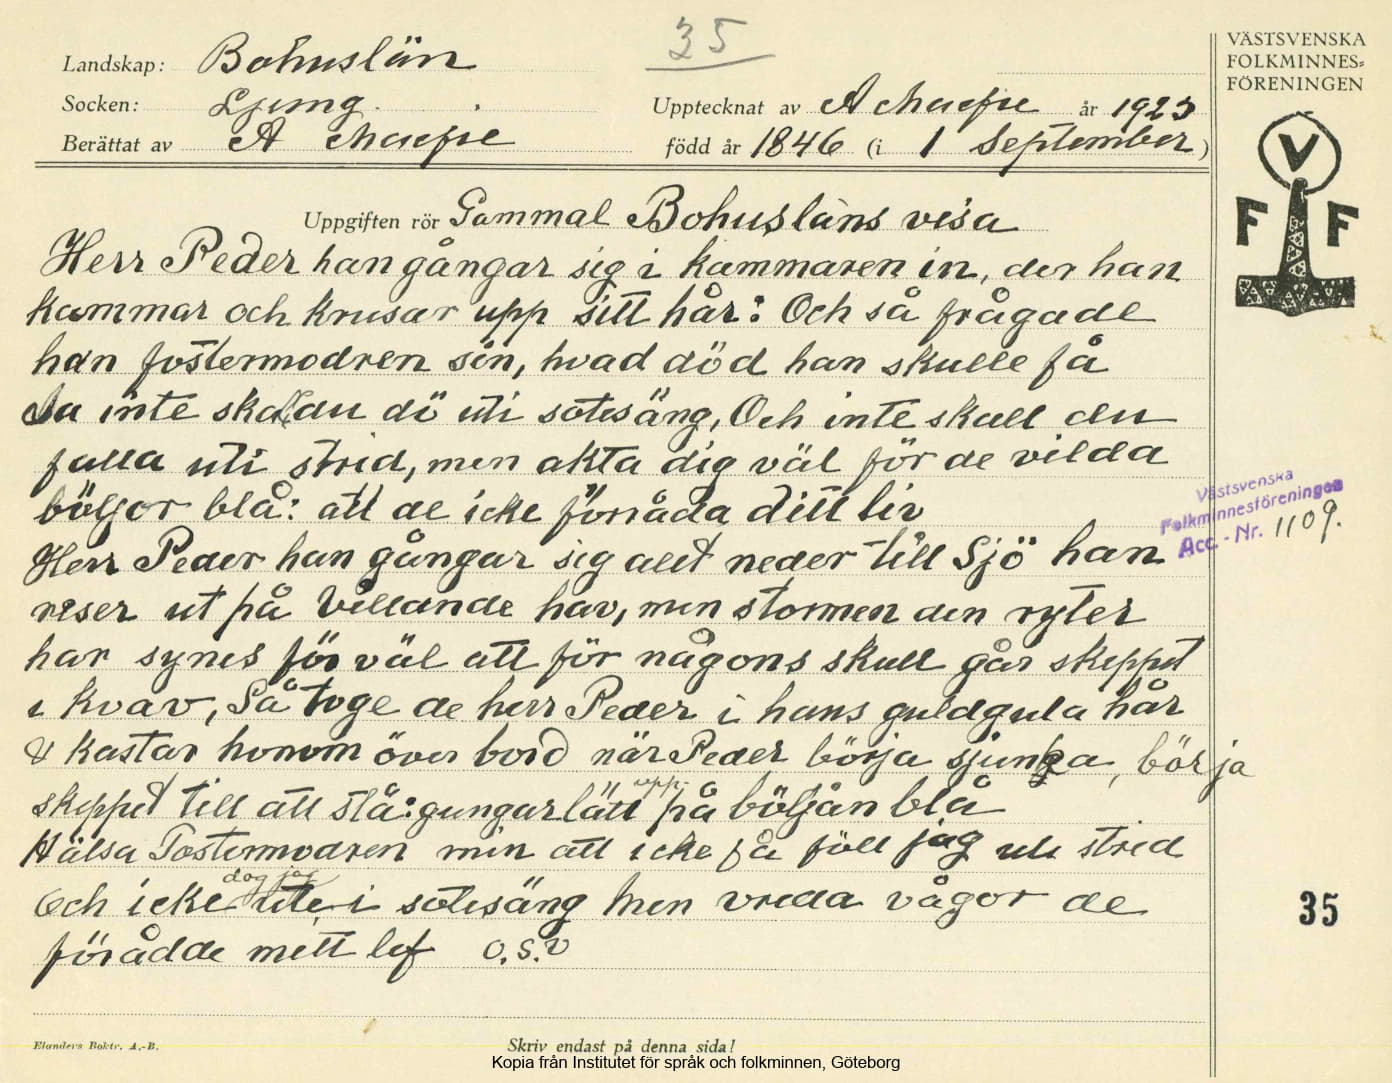 35
Landskap: Bohuslän
Socken: Ljung
Berättat av A
Upptecknat av A år 1923
född år 1846 (i 1 September)
VÄSTSVENSKA
FOLKMINNES=
FÖRENINGEN
V
F F
Uppgiften rör Gammal Bohusläns visa
Herr Peder han gångar sig i kammaren in, der han
kammar och krusar upp sitt hår: Och så frågade
han fostermodren sin, hvad död han skulle få
Du inte skall du dö uti sotesäng, Och inte skall du
falla uti strid, men akta dig väl för de vilda
böljor blå: att de icke förråda ditt liv
Herr Peder han gångar sig allt neder till Sjö han
reser ut på villande hav, men stormen den ryter
har synes för väl att för någons skull går skeppet
i kvav, Så toge de herr Peder i hans guldgula hår
& kastar honom över bord när Peder börja sjunka, börja
skeppet till att slå: gungar lätt upp på böljan blå
Hälsa Fostermodren min att icke få föll jag uti strid
och icke dog jag ute i sotesäng Men vreda vågor de
förådde mitt lif o.s.v
Västsvenska
Folkminnesföreningen
Acc.-Nr. 1109.
35
Elanders Boktr. A.-B.
Skriv endast på denna sida!
Kopia från Institutet för språk och folkminnen, Göteborg